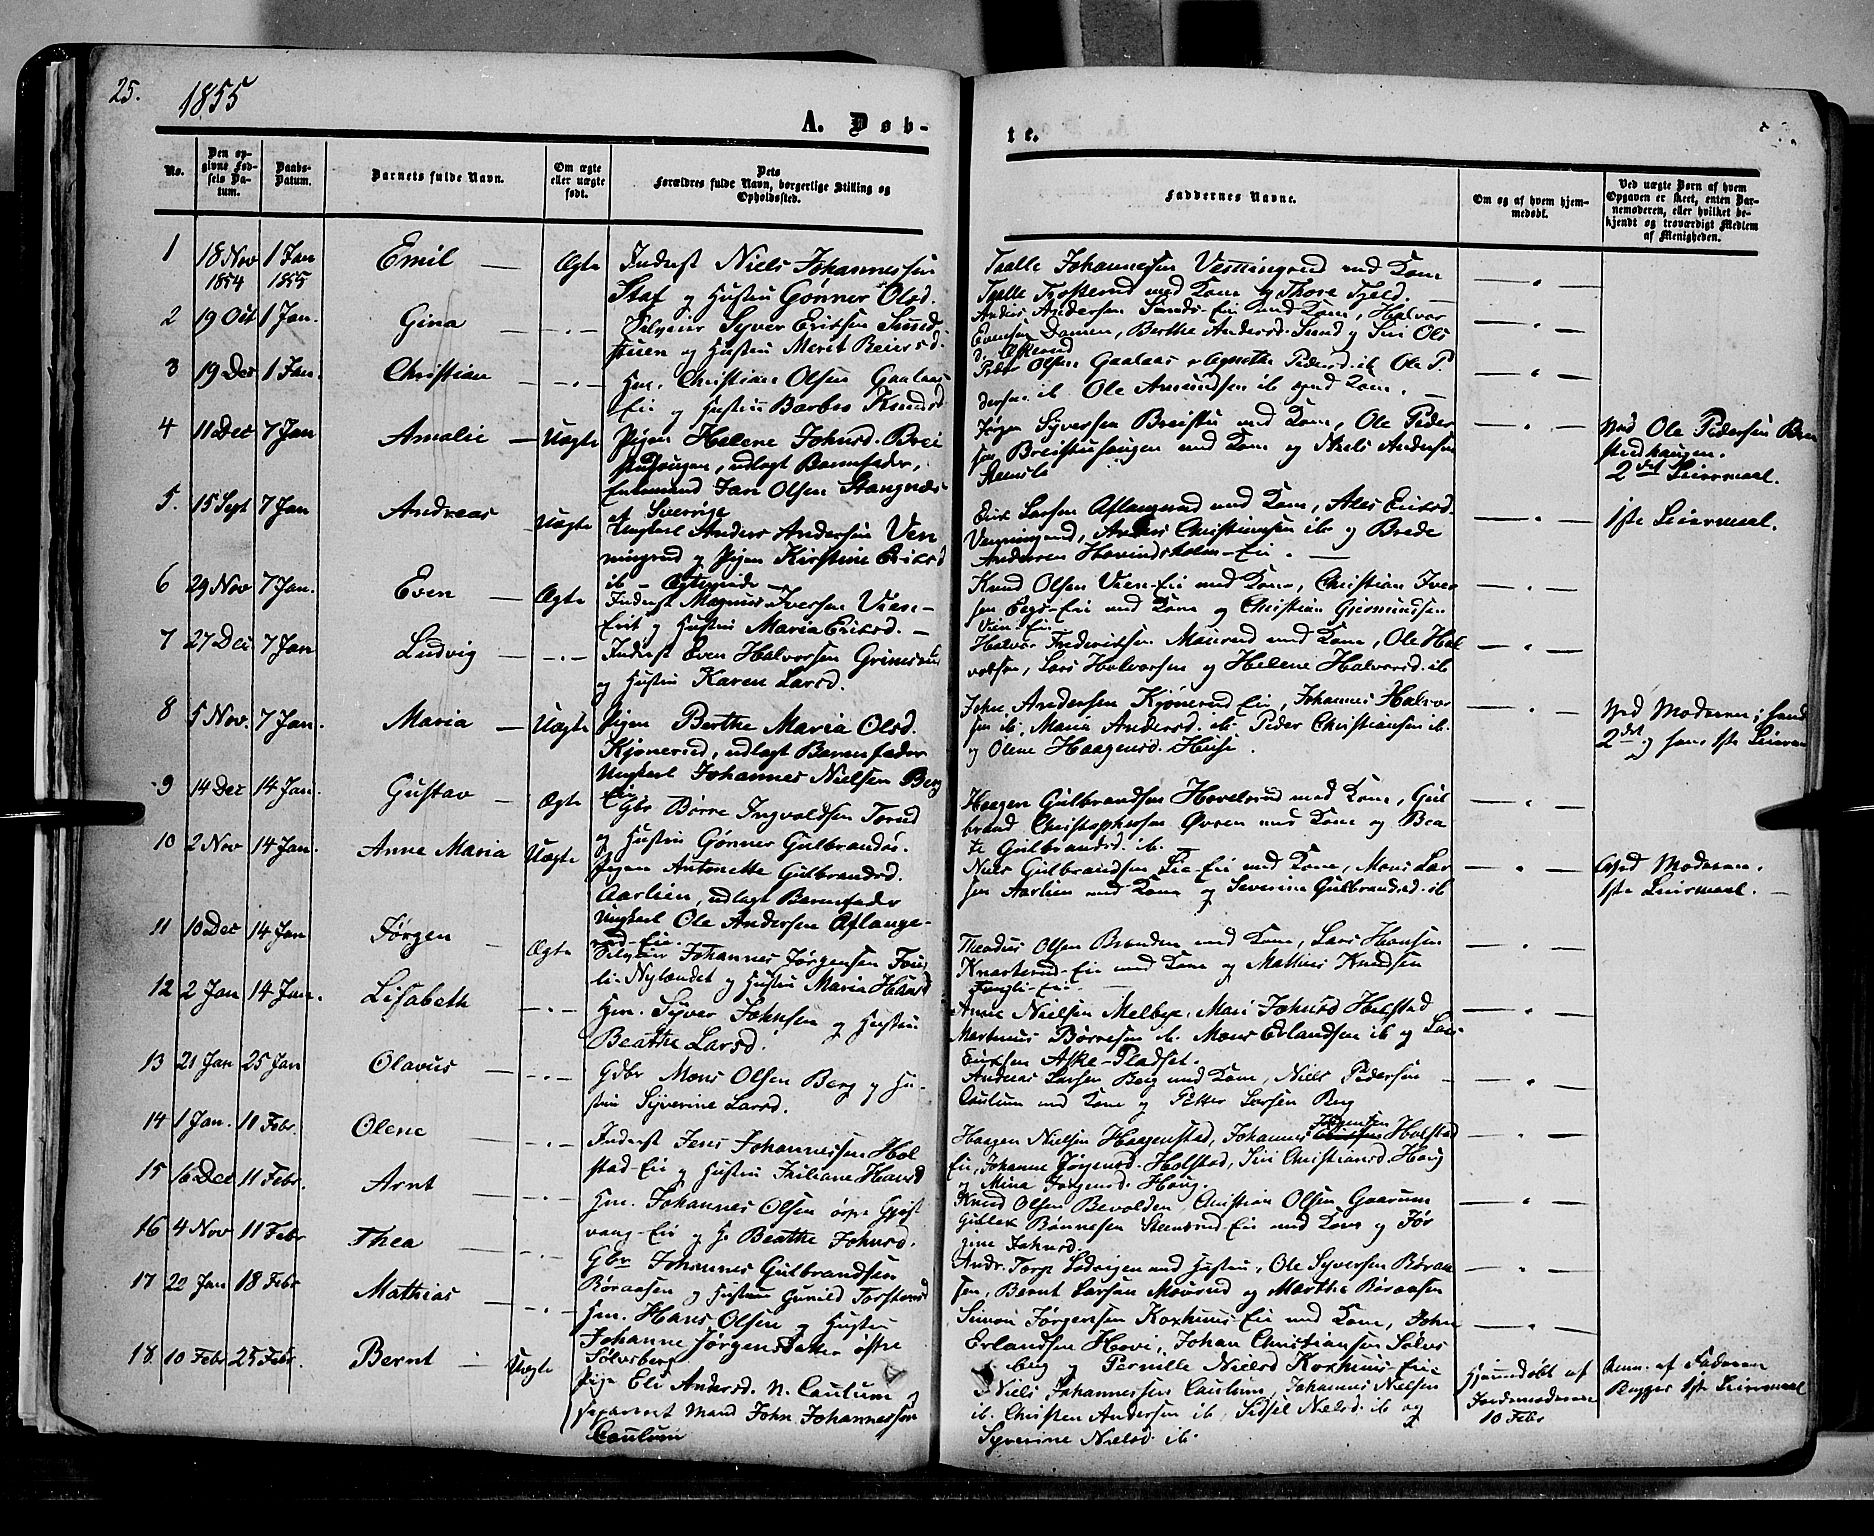 25.
1855
A. Døb-
te.
No.
Den op-
givne Fød-
sels Da-
tum.
Daabs-
Datum.
Barnets fulde Navn.
Om ægte
eller uægte
født.
Dets
Forældres fulde Navn, borgerlige Stilling og
Opholdssted.
Faddernes Navne.
Om og af hvem hjem-
medøbt.
Ved uægte Børn af hvem
Opgaven er skeet, enten Bar-
nemoderen, eller hvilket be-
kjendt og troværdigt Medlem
af Menigheden.
1 18 Nov 1854 1 Jan 1855 Emil — Ægte
Inderst Niels Johannessen
og Hustru Gønner Olsd.
Johannesen med Kone
med Kone og Thore
2 19 Oct 1 Jan. Gina — " —
Selveier Syver Ericksen Sund-
stuen og Hustru Merit Reiersd.
Anders Andersen Sunds-Eie med Kone, Halvor
Evensen Damen, Berthe Andersd. Sund og Siri Ols
d.
3 19 Dec 1 Jan. Christian — " —
Hm. Christian Olsen Gaalaas
Eie og Hustru Barbro Knudsd
Peder Olsen Gaalaas Agnethe Pedersd. ib Ole P
dersen ib Ole Amundsen ib med Kone.
4 11 Dec 7 Jan Amalie — Uægte
Pigen Helene Johnsd. Brei
stuhaugen, udlagt Barnefader,
Enkemand Jan Olsen Stangnæs
af Sverige
Jørgen Syversen Breistu med Kone, Ole Peder
sen Breistuhaugen med Kone og Niels Andersen
Ved Ole Pedersen Brei
stuehaugen.
2det Leiermaal.
5. 15 Sept 7 Jan Andreas — Uægte
Ungkarl Anders Andersen Ven
ningrud og Pigen Kirstine Ericsd
ib —
Eric Larsen Aflangrud med Kone, Ales Ericsd.
Venningrud, Anders Christiansen ib og Brede
Andersen Hovindsholm-Eie. —
1ste Leiermaal.
6 29 Nov 7 Jan. Even — Ægte
Inderst Magnus Iversen Vien-
Eie og Hustru Maria Ericsd. —
Knud Olsen Vien-Eie med Kone, Christian Iver
sen Eie med Kone og Christian Gjermundsen
Vien-Eie
7 27 Dec 7 Jan Ludvig — " —
Inderst Even Halvorsen Grimsrud
og Hustru Karen Larsd.
Halvor Frederiksen Maurud med Kone, Ole Hal
vorsen, Lars Halvorsen og Helene Halvorsd. ib
8 5 Nov. 7 Jan. Maria — Uægte
Pigen Berthe Maria Olsd.
Kjønerud, udlagt Barnefader
Ungkarl Johannes Nielsen Berg
Eie
John Andersen Kjønerud Eie, Johannes Halvor
sen ib, Maria Andersd. ib. Peder Christiansen ib.
og Olene Haagensd. Huse.
Ved Moderen; hendes
2det og hans 1ste Leierm.
9 14 Dec 14 Jan. Gustav — Ægte
Gbr Børre Ingvoldsen Torud
og Hustru Gønner Gulbrandsd.
Haagen Gulbrandsen Hovelsrud med Kone, Gul
brand Christophersen Øvren med Kone og Bea
te Gulbrandsd. ib.
10 2 Nov 14 Jan. Anne Maria Uægte
Pigen Antonette Gulbrandsd.
Aarlien, udlagt Barnefader
Ungkarl Ole Andersen Aflange-
rud-Eie.
Niels Gulbrandsen Lie-Eie med Kone, Mons Lar
sen Aarlien med Kone og Severine Gulbrandsd. ib
Ved Moderen.
1ste Leiermaal. —
11 10 Dec 14 Jan Jørgen — Ægte
Selveier Johannes Jørgensen Fou
li-Nylandet og Hustru Maria Hansd
Theodus Olsen Brenden med Kone, Lars Hansen
Knarterud-Eie med Kone og Mathias Knudsen
12 2 Jan 14 Jan. Lisabeth — " —
Hm. Syver Johnsen og Hustru
Beathe Larsd.
Anne Nielsen Melbye, Mari Johnsd Holstad
Martinus Børresen ib. Mons Erlandsen ib og Lars
Ericksen Aske-Pladset.
13 21 Jan 25 Jan Olavus — " —
Gdbr Mons Olsen Berg og Hu-
stru Syverine Larsd.
Andreas Larsen Berg med Kone, Niels Pedersen
Caulum med Kone og Petter Larsen Berg
14 1 Jan. 11 Febr. Olene — " —
Inderst Jens Johannessen Hol
stad-Eie og Hustru Juliane Hansd
Haagen Nielsen Haagenstad, Johannes Jørgensen Holstad
Eie, Johanne Jørgensd. Holstad, Siri Christiansd. Haug
og Mina Jørgensd. Haug.
15 16 Dec 11 Febr. Arnt — " —
Hm. Johannes Olsen
vang-Eie og H. Beathe Johnsd.
Knud Olsen Bevolden, Christian Olsen Gaarum
Rønnesen Stensrud-Eie med Kone og Jør
gine Johnsd.
16 4 Nov 11 Febr Thea — " —
Gbr Johannes Gulbrandsen
Røraasen og Hustru Gunild Torstensd
Andr. Torp Lodvigen med Hustru, Ole Syversen Røraa
sen, Bernt Larsen Maurud og Marthe Røraasen
17 22 Jan 18 Febr Mathias — " —
Hm. Hans Olsen og Hustru
Johanne Jørgensdatter østre
Sølvsberg
Simon Jørgensen Koxhuus Eie med Kone, John
Erlandsen Hovi, Johan Christiansen Sølvs
berg og Pernille Nielsd Koxhuus Eie
18. 10 Febr 25 Febr. Bernt — Uægte
Pige Eli Andersd. N. Caulum og
separeret Mand John Johannessen
Caulum
Niels Johannessen Caulum, Johannes Nielsen
ib. Christen Andersen ib, Sidsel Nielsd. ib og
Syverine Nielsd. ib.
Hjemmedøbt af
Jordemoderen
10 Febr
Anm. af Faderen
Begges 1ste Leiermaal